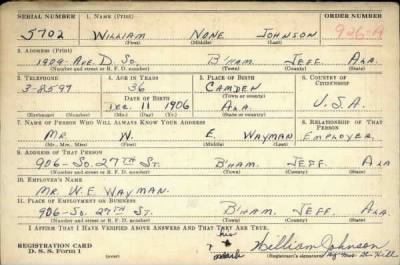 SERIAL NUMBER 1. NAME (Print) ORDER NUMBER
5702 WILLIAM NONE JOHNSON 926-A
(First) (Middle) (Last)
2. ADDRESS (Print)
1909-AVE. D. SO. B'HAM. JEFF. ALA.
(Number and street or R. F. D. number) (Town) (County) (State)
3. TELEPHONE 4. AGE IN YEARS 5. PLACE OF BIRTH 6. COUNTRY OF CITIZENSHIP
3-8597 36 CAMDEN
DATE OF BIRTH (Town or county)
DEC. 11 1906 ALA. U.S.A.
(Exchange) (Number) (Mo.) (Day) (Yr.) (State or country)
7. NAME OF PERSON WHO WILL ALWAYS KNOW YOUR ADDRESS 8. RELATIONSHIP OF THAT PERSON
MR. W. E. WAYMAN EMPLOYER
(Mr., Mrs., Miss) (First) (Middle) (Last)
9. ADDRESS OF THAT PERSON
906-SO. 27TH ST. B'HAM. JEFF. ALA
(Number and street or R. F. D. number) (Town) (County) (State)
10. EMPLOYER'S NAME
MR. W. E. WAYMAN.
11. PLACE OF EMPLOYMENT OR BUSINESS
906-SO. 27TH ST. B'HAM. JEFF. ALA
(Number and street or R. F. D. number) (Town) (County) (State)
I AFFIRM THAT I HAVE VERIFIED ABOVE ANSWERS AND THAT THEY ARE TRUE.
REGISTRATION CARD his
D. S. S. Form 1 (over) x mark William Johnson
(Registrant's signature) By